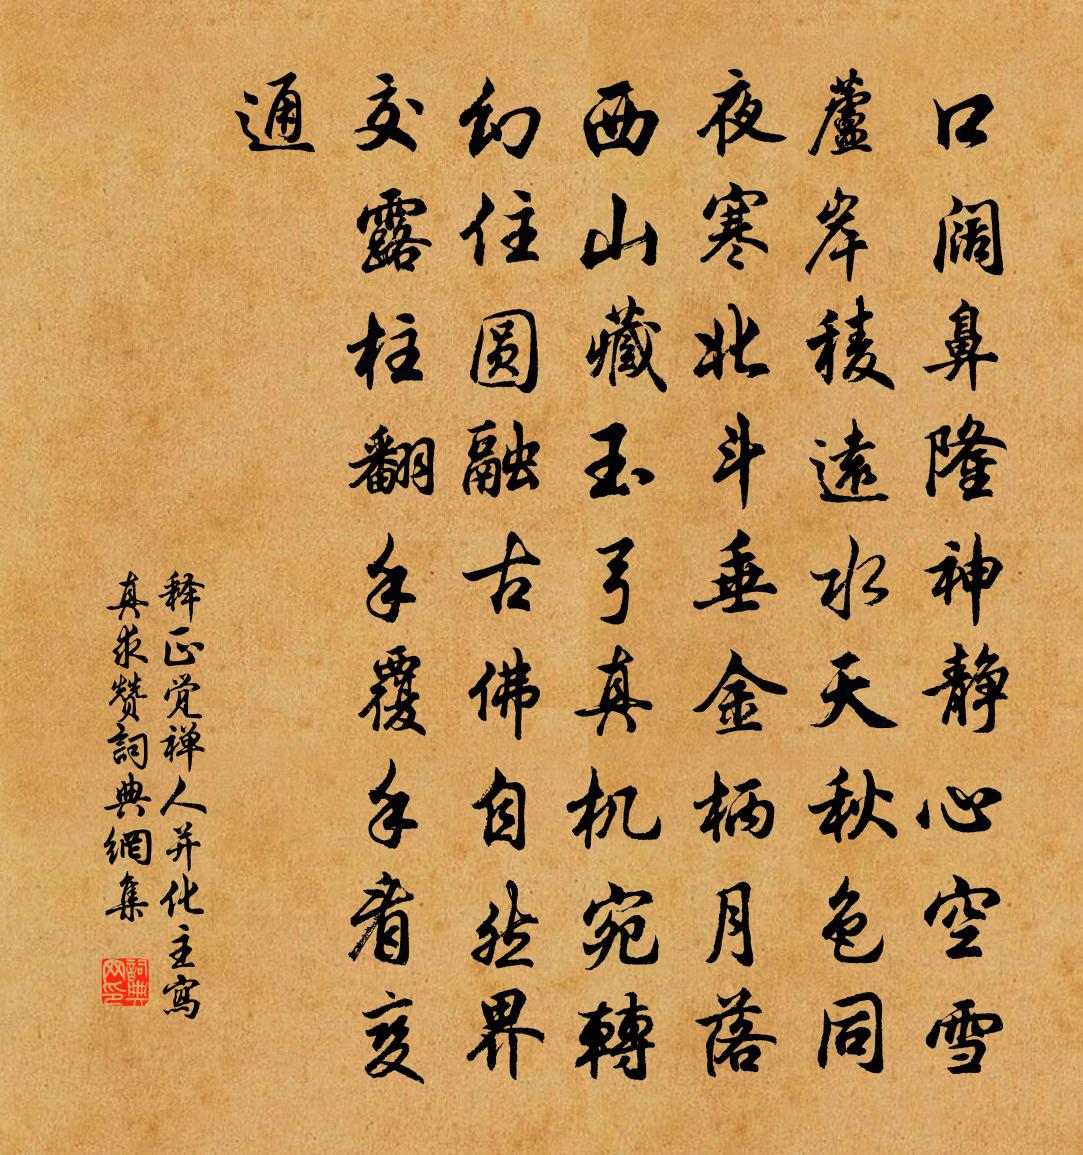 口阔鼻隆神静心空雪
蘆岸稜遠水天秋色同
夜寒北斗垂金柄月落
西山藏玉弓真机宛轉
幻住圆融古佛自然界
交露柱翻手覆手看变
通
释正觉禅人并化主寫
真求赞詞典網集
詞典网印